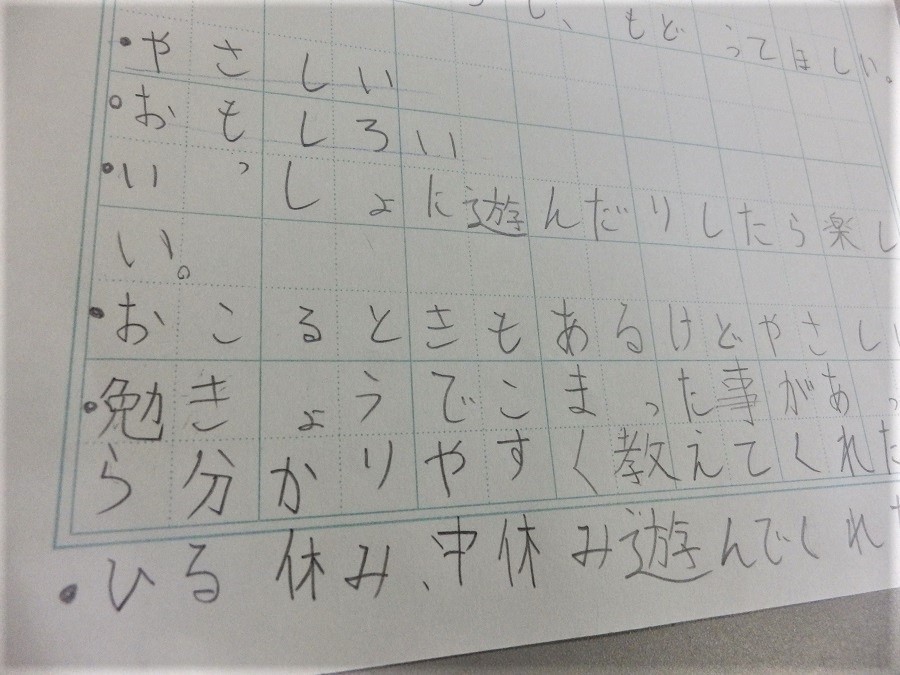 もどってほしい。
・やさしい
・おもしろい
・いっしょに遊んだりしたら楽し
い。
・おこるときもあるけどやさしい
・勉きょうでこまった事があっ
ら分かりやすく教えてくれた
・ひる休み、中休み遊んでくれた